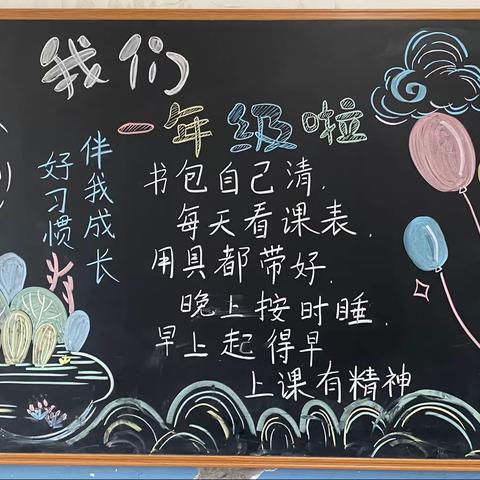 我们
一年级啦
好习惯
伴我成长
书包自己清.
每天看课表.
用具都带好.
晚上按时睡.
早上起得早
上课有精神